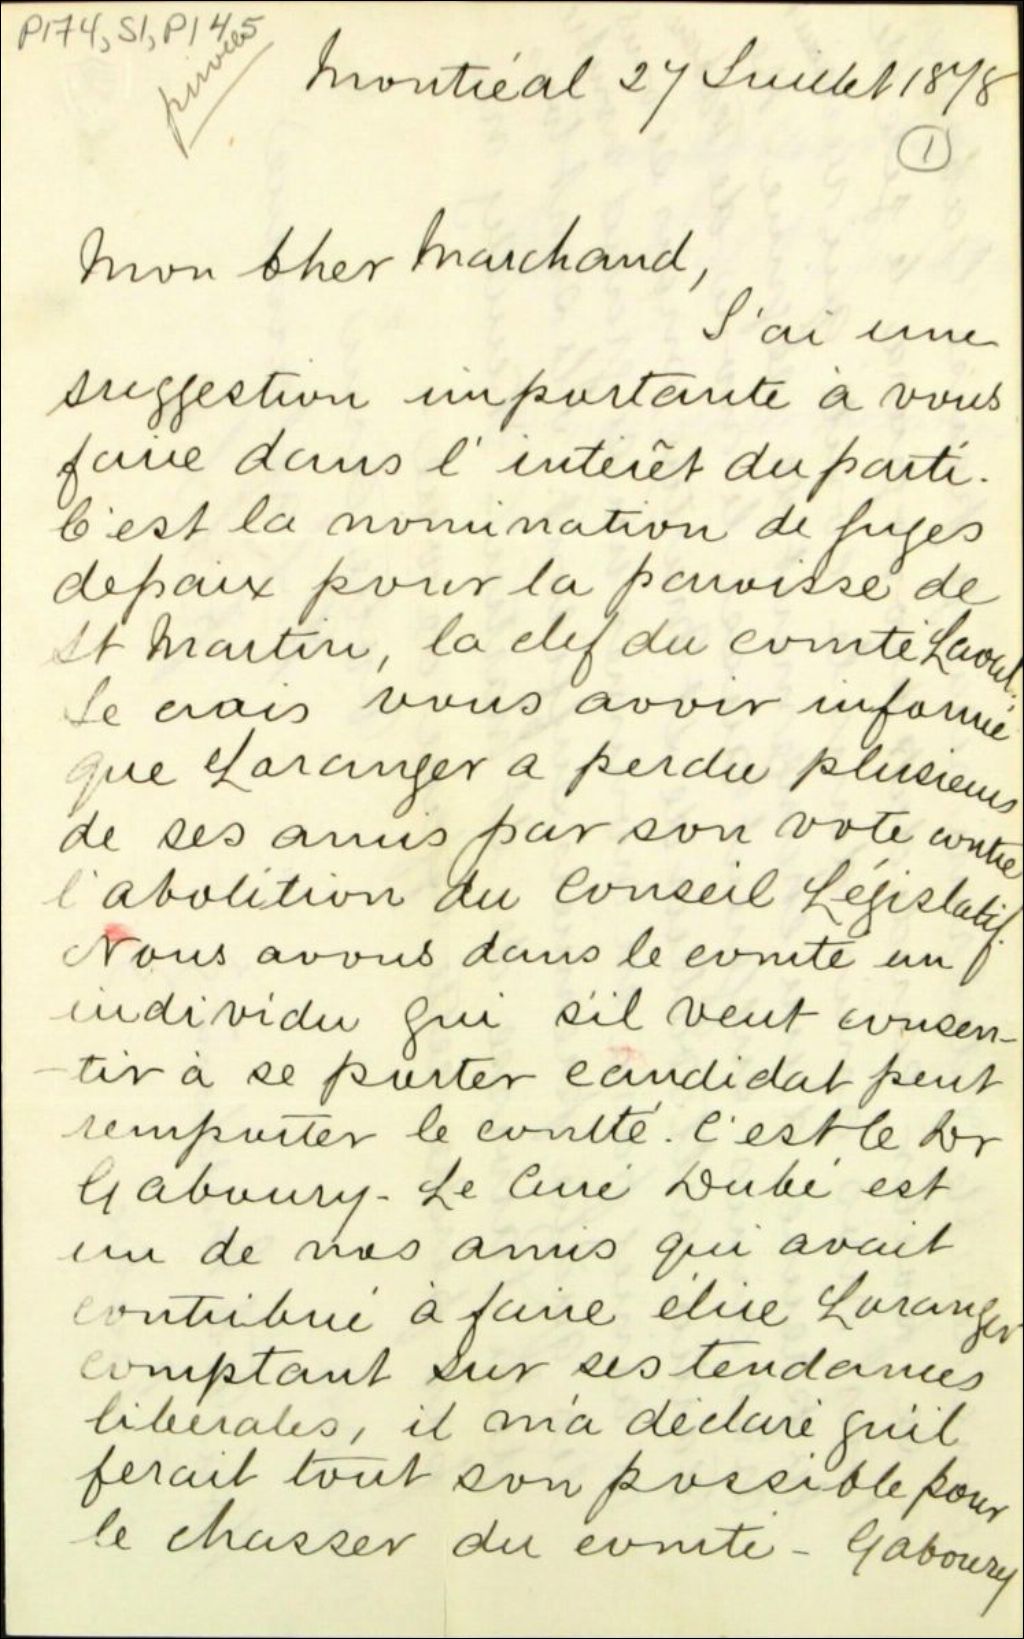 P174, S1, P145
Montréal 27 Juillet 1878
1
Mon Cher Marchand,
J'ai une
suggestion importante à vous
faire dans l'intérêt du parti.
C'est la nomination de Juges
de paix pour la paroisse de
St Martin, la clef du comté Laval.
Je crois vous avoir informé
que Loranger a perdu plusieurs
de ses amis par son vote contre
l'abolition du Conseil Législatif.
Nous avons dans le comté un
individu qui s'il veut consen-
tir à se porter candidat peut
remporter le comté. C'est le Dr
Gaboury - Le Curé Dubé est
un de nos amis qui avait
contribué à faire élire Loranger
comptant sur ses tendances
libérales, il m'a déclaré qu'il
ferait tout son possible pour
le chasser du comté - Gaboury